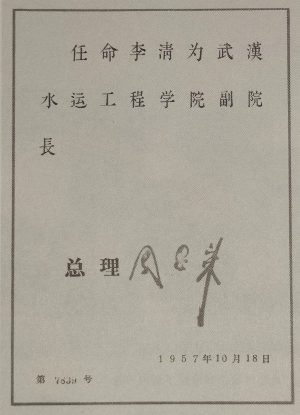 任命李清为武漢
水运工程学院副院
長
总理 周恩来
1957年10月18日
第 号